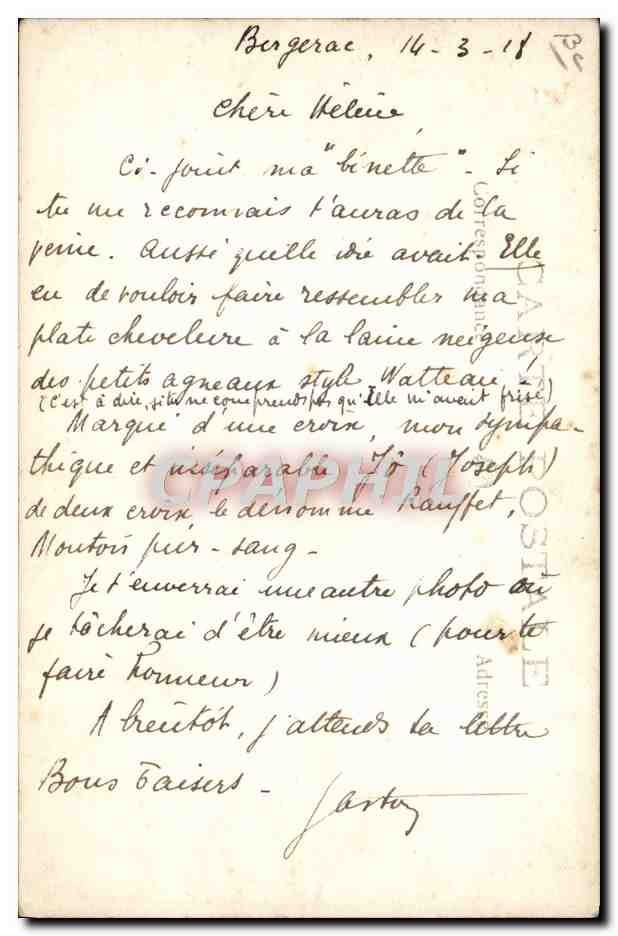 Bergerac, 14-3-18
Bc
Chère Hélène,
Ci-joint ma "binette" - Si
tu me reconnais t'auras de la
veine. Aussi quelle idée avait Elle
eu de vouloir faire ressembler ma
plate chevelure à la laine neigeuse
des petits agneaux style Watteau!
(c'est à dire, si tu ne comprends pas qu'Elle m'avait frisé)
Marqué d'une croix, mon sympa-
thique et inséparable Jô (Joseph)
de deux croix le dénommé Rauffet,
Montois pur-sang -
Je t'enverrai une autre photo où
je tâcherai d'être mieux (pour te
faire honneur)
A bientôt, j'attends ta lettre
Bons Baisers -
Gaston
CARTE POSTALE
Correspondance
Adresse
CPAPHIL